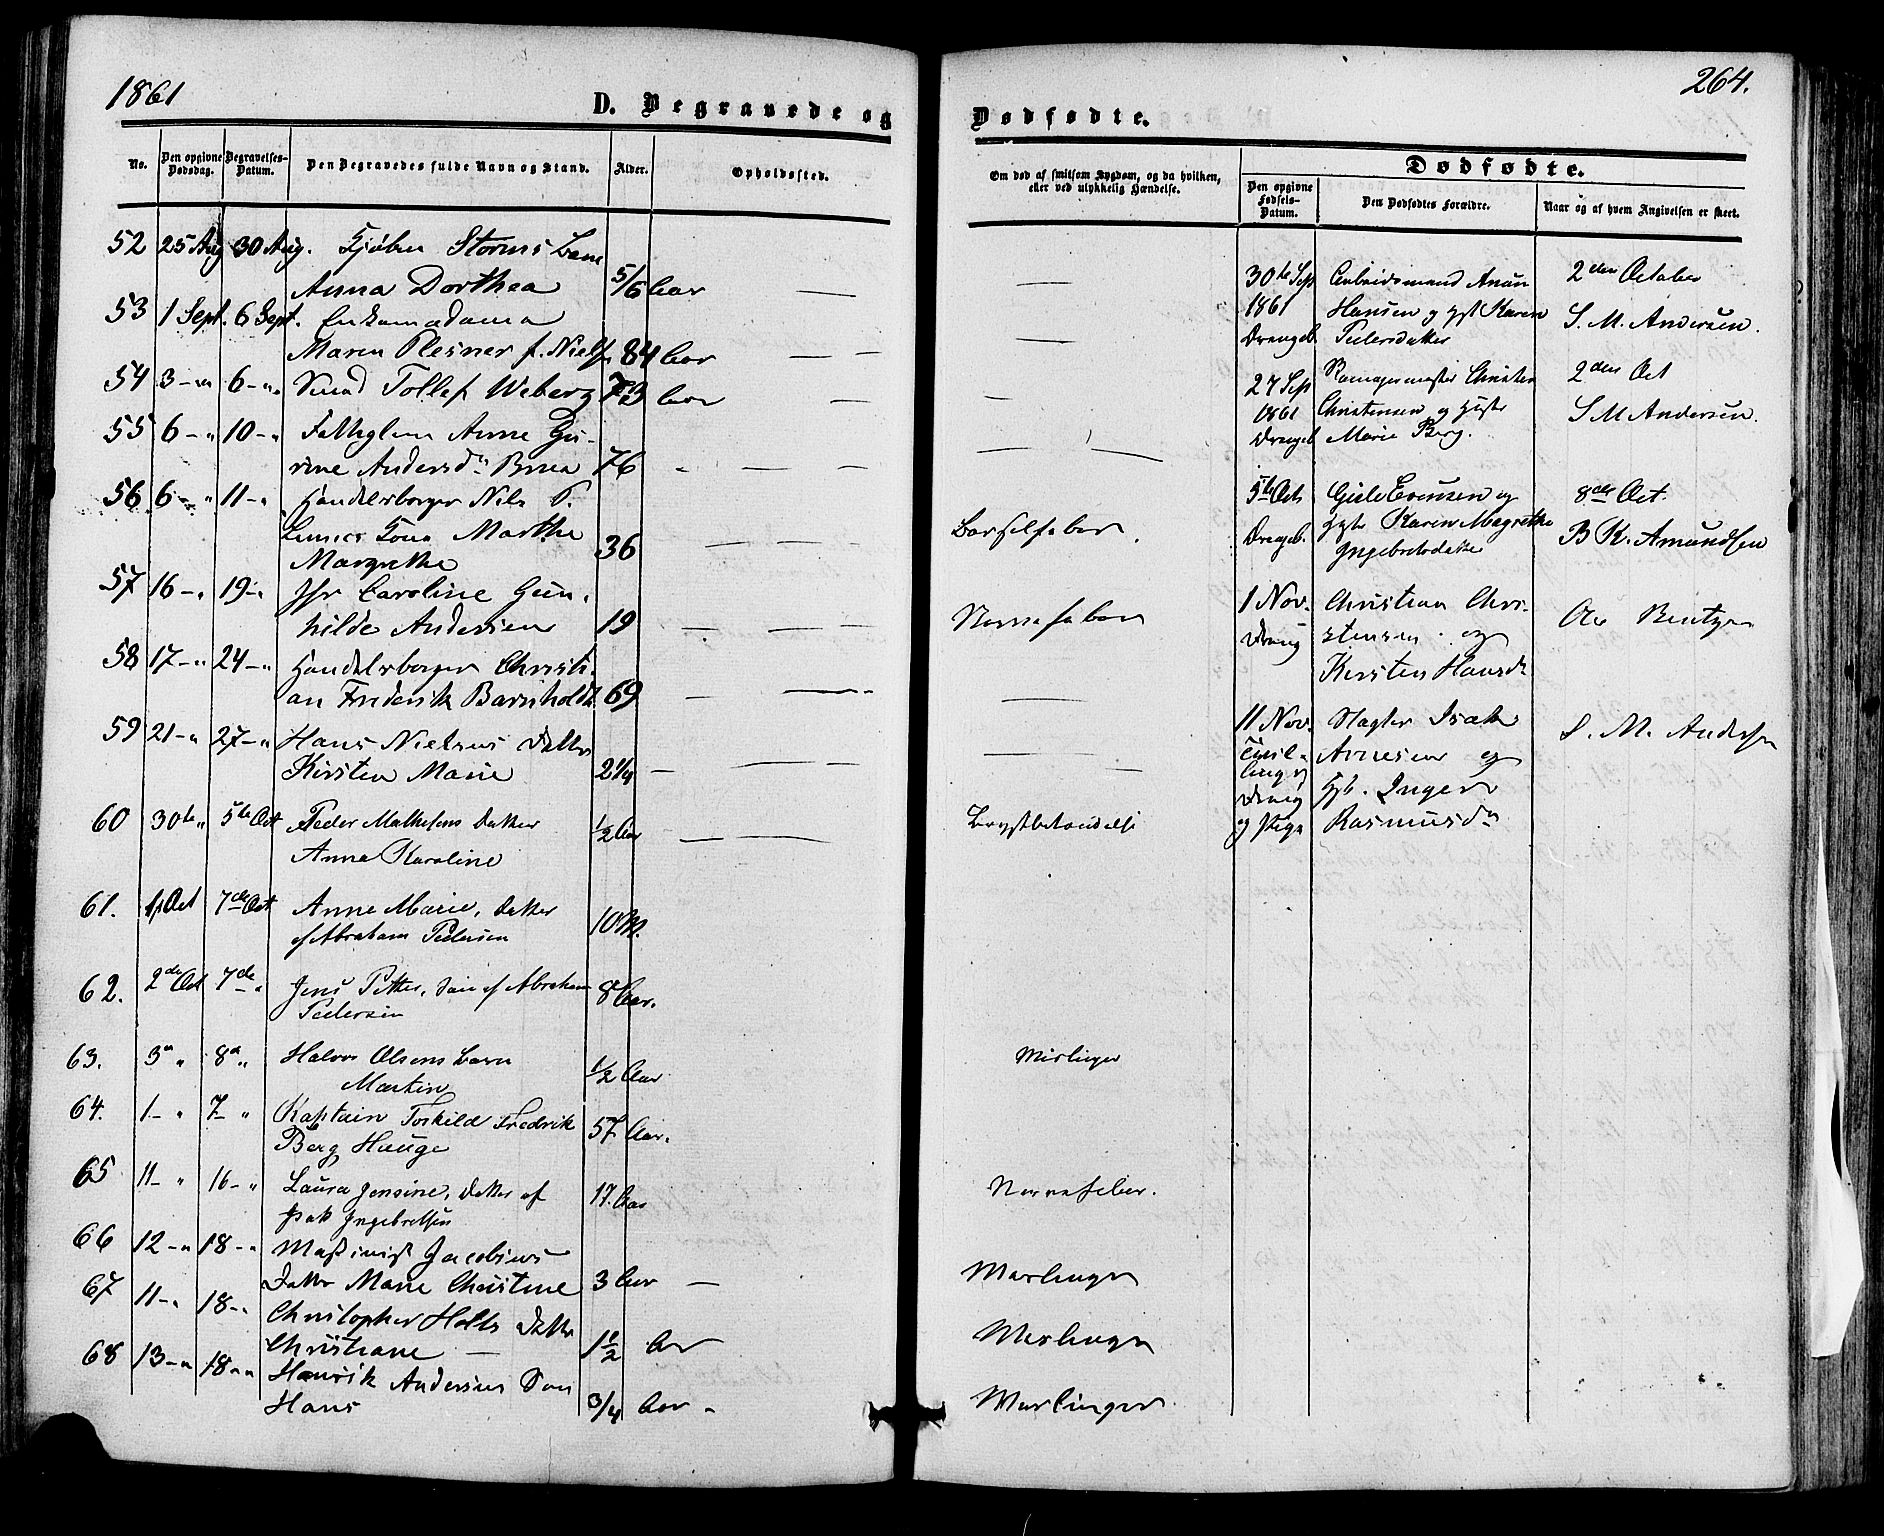 1861
D. Begravede og
No.
Den opgivne Dødsdag.
Begravelses-Datum.
Den Begravedes fulde Navn og Stand.
Alder.
Opholdssted.
52 25 Aug 30 Aug. Storms
Anna Dorthea 5/6 Aar —
53 1 Sept. 6 Sept. Enkemadame
Maren Plesner f. Niels 84 Aar —
54 3 — " 6 — " Tollef Weberg 73 Aar —
55 6 — " 10 — " Anne Gu-
rine Andersd. 76 — — —
56 6 — " 11 — " Handelsborger Nils P.
Kone Marthe 36 — — —
Margrethe
57 16 — " 19 — " Jfr Caroline Gun-
hilde Andersen 19 — — —
58 17 — " 24 — " Handelsborger Christi-
an Frederik Barnholdt 69 — —
59 21 — " 27 — " Hans Nielsens Datter
Kirsten Marie 2 1/4 — — —
60 30te " 5te Oct Peder Mathesens Datter 1/2 Aar — —
Anna Karoline
61. 1 Oct 7de Oct Anne Marie, Datter 10 M.
af Abraham Pedersen
62. 2de Oct 7de " Jens Petter, Søn af Abraham 8 Aar.
Pedersen
63. 3 " 8 " Halvor Olsens Barn
Martin 1/2 Aar
64. 1 — " 7 — " Kaptain Torkild Fredrik 57 Aar.
Berg Hauge
65 11 — " 16 — " Laura Jensine, Datter af 17. Aar
Isak Ingebretsen
66 12 — " 18 — " Maskinist Jacobsens
Datter Marie Christine 3 Aar —
67 11 — " 18 — " Christopher Holts Datter
Christiane — 1 1/2 Aar
68 13 — " 18 — " Henrik Andersens Søn
Hans 3/4 Aar -
264.
Dødfødte.
Om død af smitsom Sygdom, og da hvilken,
eller ved ulykkelig Hændelse.
Dødfødte.
Den opgivne Fødsels-Datum.
Den Dødfødtes Forældre.
Naar og af hvem Angivelsen er skeet.
—
—
—
—
Barselfeber.
Nervefeber
—
—
Brystbetændelse
Meslinger
Nervefeber.
Meslinger
Meslinger
Meslinger
30te Sep Arbeidsmand 2den October
1861 Hansen og Hst Karen S. M. Andersen.
Drangd. Pedersdatter
27 Sep Christen 2den Oct
1861 Christensen og Hst S M Andersen.
Drangd Marie Berg.
5te Oct Evensen og 8de Oct.
Drangd. Hst Karen Magrethe B K. Amundsen
Ingebretsdatter
1 Nov. Christian Chri- Bentzen
Drang stensen og
Kirsten Hansd.
11 Nov. Slagter Isak S. M. Andersen
Tvil- Arnesen og
ling Hst. Inger
Dreng Rasmusd.
og Pige